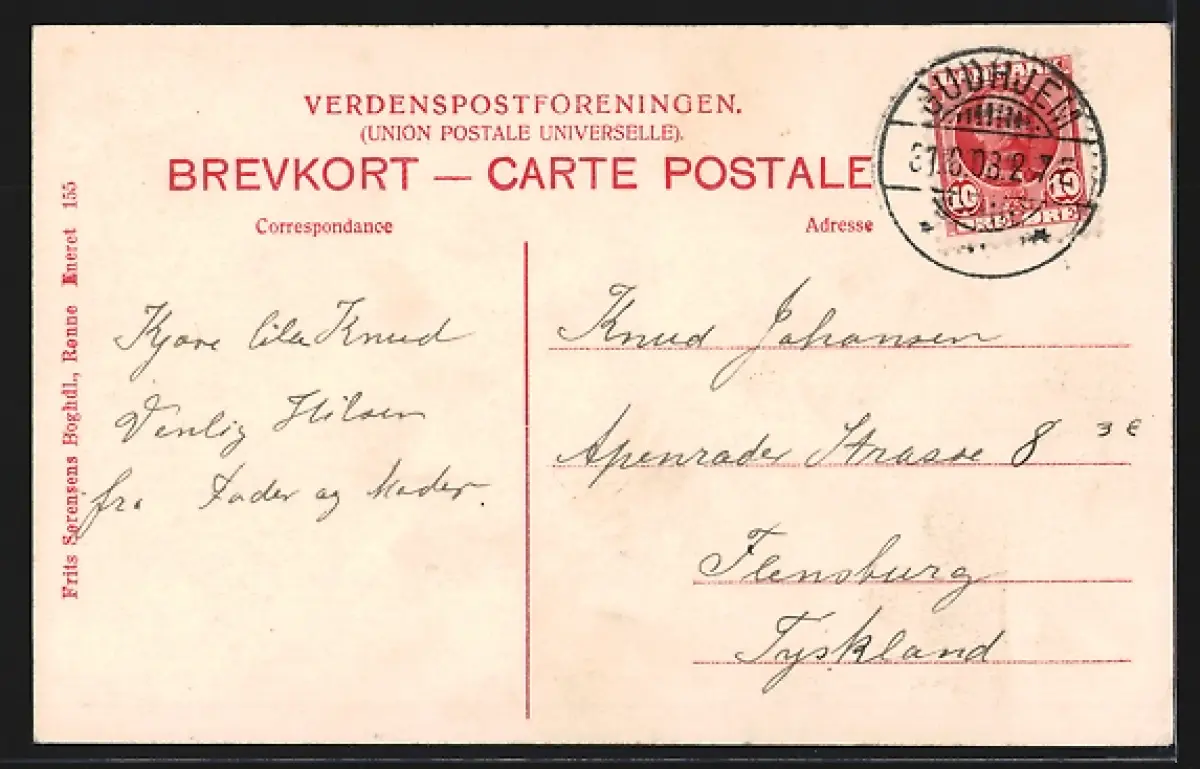 VERDENSPOSTFORENINGEN.
(UNION POSTALE UNIVERSELLE).
BREVKORT — CARTE POSTALE
Correspondance
Adresse
GUDHJEM
10 10
Frits Sørensens Boghdl., Rønne Eneret 155
Kjære lila Knud
Venlig Hilsen
fra Fader og Moder.
Knud Johansen
Apenrader Strasse 8
3 €
Flensburg
Tyskland